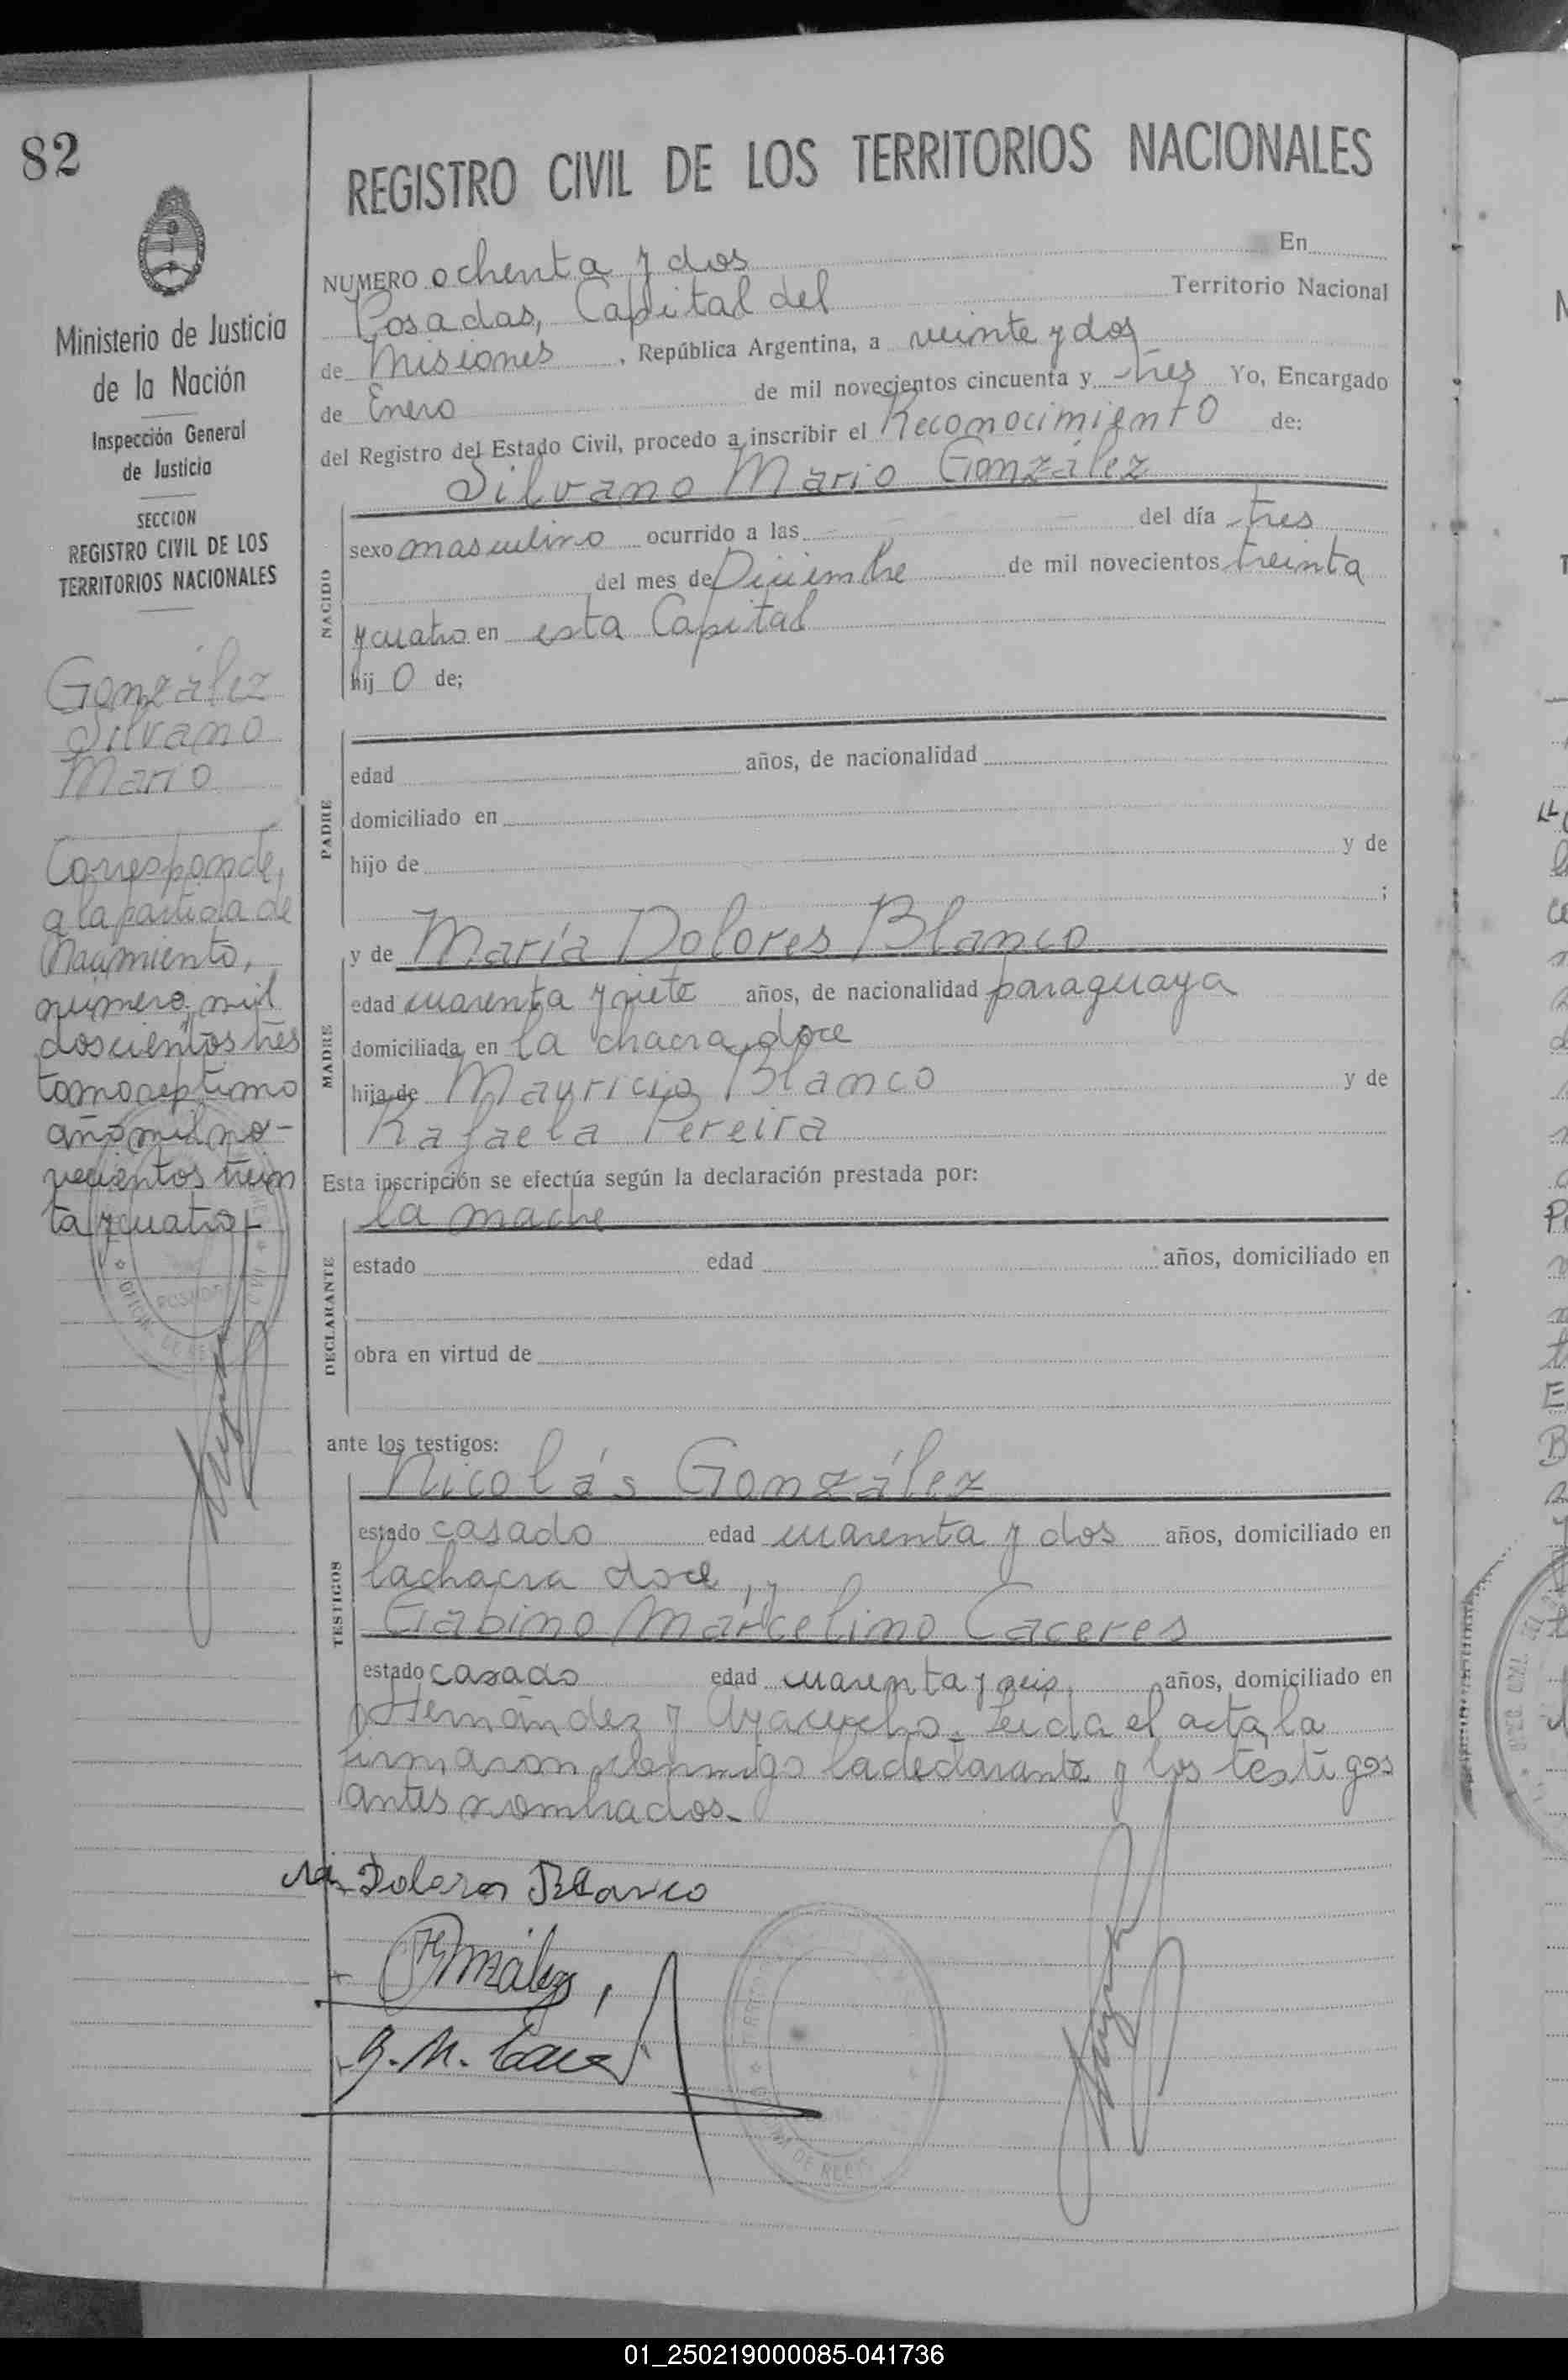 82
Ministerio de Justicia
de la Nación
Inspección General
de Justicia
SECCION
REGISTRO CIVIL DE LOS
TERRITORIOS NACIONALES
González
Silvano
Mario
Corresponde,
a la partida de
Nacimiento,
número, mil
doscientos tres
tomo septimo
año mil no-
vecientos trein
ta y cuatro
REGISTRO CIVIL DE LOS TERRITORIOS NACIONALES
NUMERO ochenta y dos En
Posadas, Capital del Territorio Nacional
de Misiones , República Argentina, a veinte y dos
de Enero de mil novecientos cincuenta y tres Yo, Encargado
del Registro del Estado Civil, procedo a inscribir el Reconocimiento de:
Silvano Mario González
NACIDO
sexo masculino ocurrido a las del día tres
del mes de Diciembre de mil novecientos treinta
y cuatro en esta Capital
hij o de;
PADRE
edad años, de nacionalidad
domiciliado en
hijo de y de
;
MADRE
y de María Dolores Blanco
edad cuarenta y siete años, de nacionalidad paraguaya
domiciliada en la chacra doce
hija de Mauricio Blanco y de
Rafaela Pereira
Esta inscripción se efectúa según la declaración prestada por:
la madre
DECLARANTE
estado edad años, domiciliado en
obra en virtud de
ante los testigos:
TESTIGOS
Nicolás González
estado casado edad cuarenta y dos años, domiciliado en
la chacra doce, y
Gabino Marcelino Caceres
estado casado edad cuarenta y seis años, domiciliado en
Hernández y Ayacucho. Leida el acta, la
firmaron conmigo la declarante y los testigos
antes nombrados.
Dolores Blanco
González
G. M. Cace
01_250219000085-041736